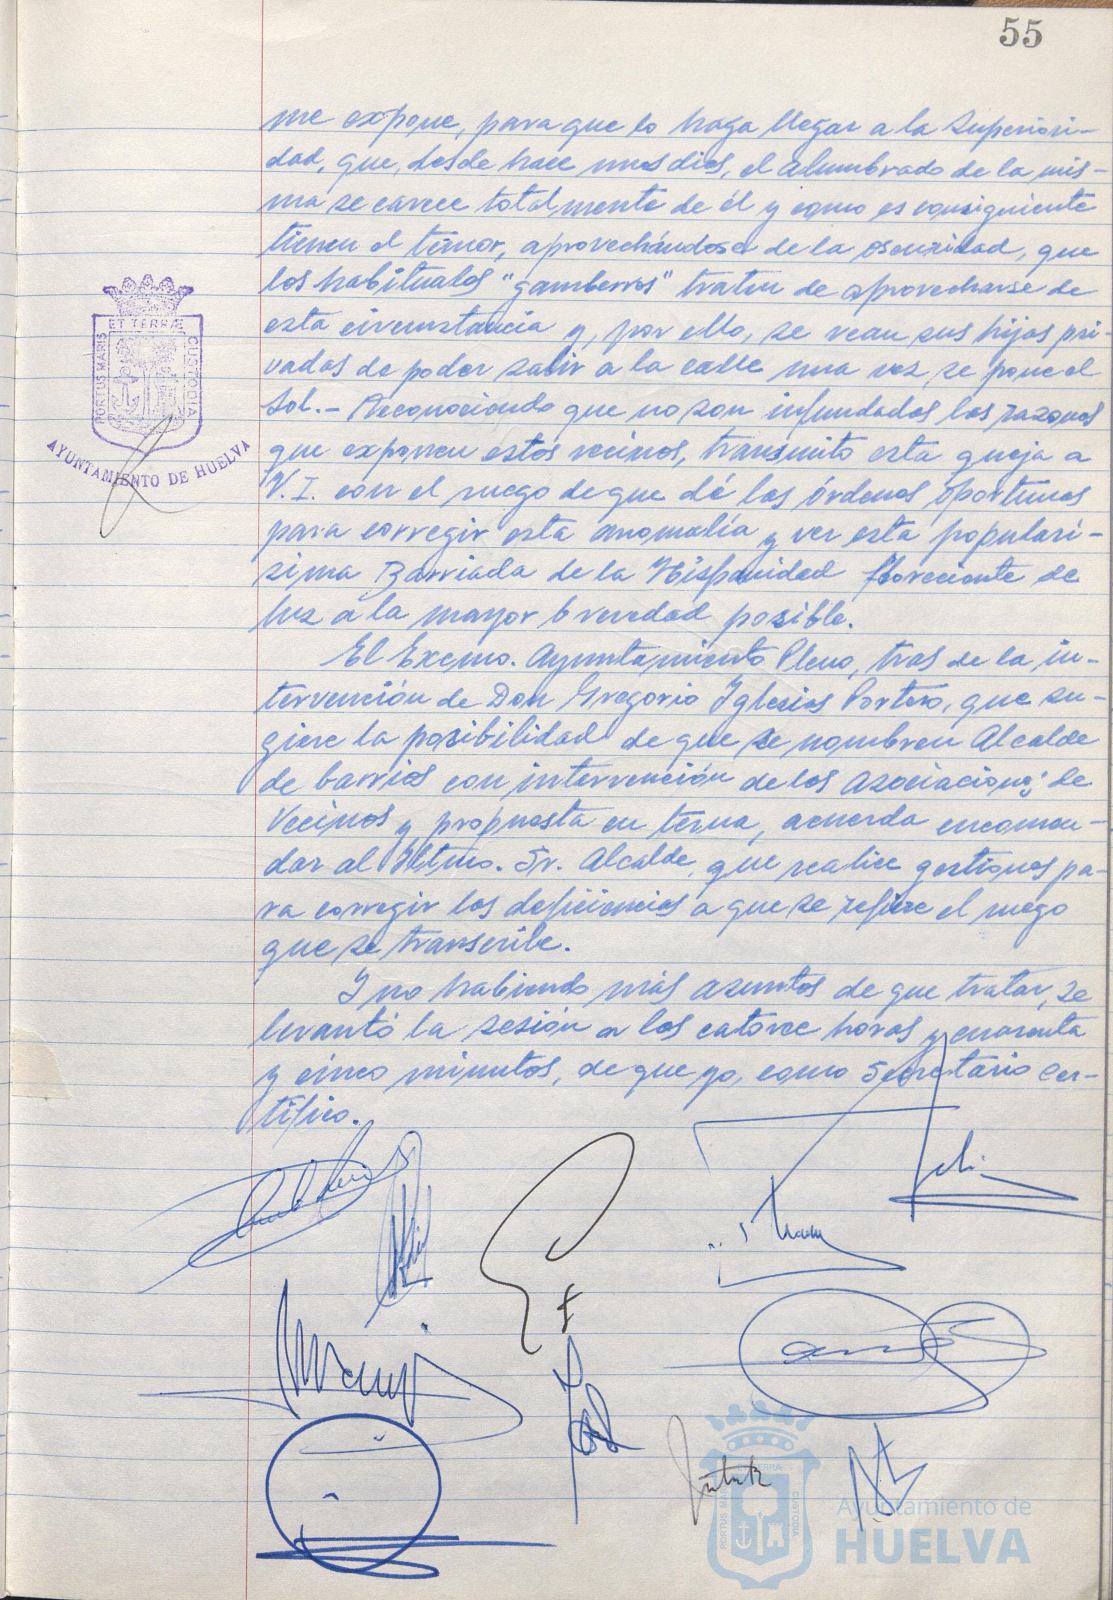 55
me expone, para que lo haga llegar a la Superiori-
dad, que, desde hace unos dias, el alumbrado de la mis-
ma se carece totalmente de él y como es consiguiente
tienen el temor, aprovechándose de la oscuridad, que
los habituales "gamberros" traten de aprovecharse de
esta circunstancia y, por ello, se vean sus hijas pri-
vadas de poder salir a la calle una vez se pone el
Sol.- Reconociendo que no son infundadas las razones
que exponen estos vecinos, transmito esta queja a
V.I. con el ruego de que dé las órdenes oportunas
para corregir esta anomalía y ver esta populari-
sima Barriada de la Hispanidad floreciente de
luz a la mayor brevedad posible.
El Excmo. Ayuntamiento Pleno, tras de la in-
tervención de Don Gregorio Iglesias Portero, que su-
giere la posibilidad de que se nombren Alcalde
de barrios con intervención de las Asociaciones de
Vecinos y propuesta en terna, acuerda encomen-
dar al Iltmo. Sr. Alcalde, que realice gestiones pa-
ra corregir las deficiencias a que se refiere el ruego
que se transcribe.
Y no habiendo más asuntos de que tratar, se
levantó la sesión a las catorce horas y cuarenta
y cinco minutos, de que yo, como Secretario cer-
tifico.
PORTUS MARIS ET TERRÆ CUSTODIA
AYUNTAMIENTO DE HUELVA
PORTUS MARIS ET TERRÆ CUSTODIA
Ayuntamiento de
HUELVA